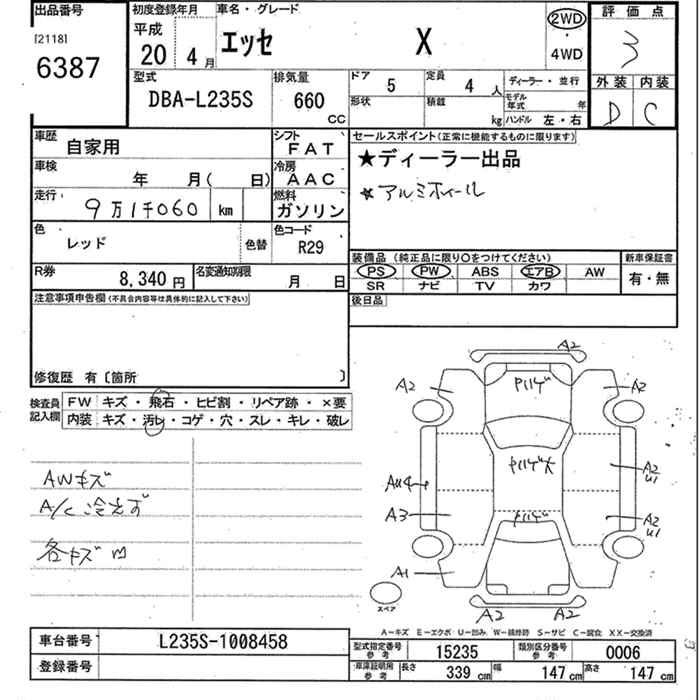 出品番号
[2118]
6387
初度登録年月
平成
20 4月
車名・グレード
エッセ X
2WD
・
4WD
評価点
3
外装 内装
D C
型式
DBA-L235S
排気量
660
CC
ドア
5
定員
4 人
形状
積載
kg
ディーラー・並行
モデル年式 年
ハンドル 左・右
車歴
自家用
シフト
FAT
車検
年 月( 日)
冷房
AAC
走行
9万1千060 km
燃料
ガソリン
色
レッド
色替
色コード
R29
R券
8,340 円
名変通知期限
月 日
セールスポイント(正常に機能するものに限ります)
★ディーラー出品
★アルミホイール
装備品(純正品に限り○をつけてください)
PS PW ABS エアB AW
SR ナビ TV カワ
新車保証書
有・無
後日品
注意事項申告欄(不具合内容等は具体的に記入して下さい)
修復歴 有〔箇所 〕
検査員
記入欄
FW キズ・飛石・ヒビ割・リペア跡・×要
内装 キズ・汚レ・コゲ・穴・スレ・キレ・破レ
AWキズ
A/C冷えず
各キズ凹
A2
A2
A2
A3
A1
A2
U1
A2
U1
A2
A2
スペア
A-キズ E-エクボ U-凹み W-補修跡 S-サビ C-腐食 XX-交換済
車台番号
L235S-1008458
登録番号
型式指定番号
参考
15235
類別区分番号
参考
0006
車庫証明用
参考
長さ 339 cm 幅 147 cm 高さ 147 cm